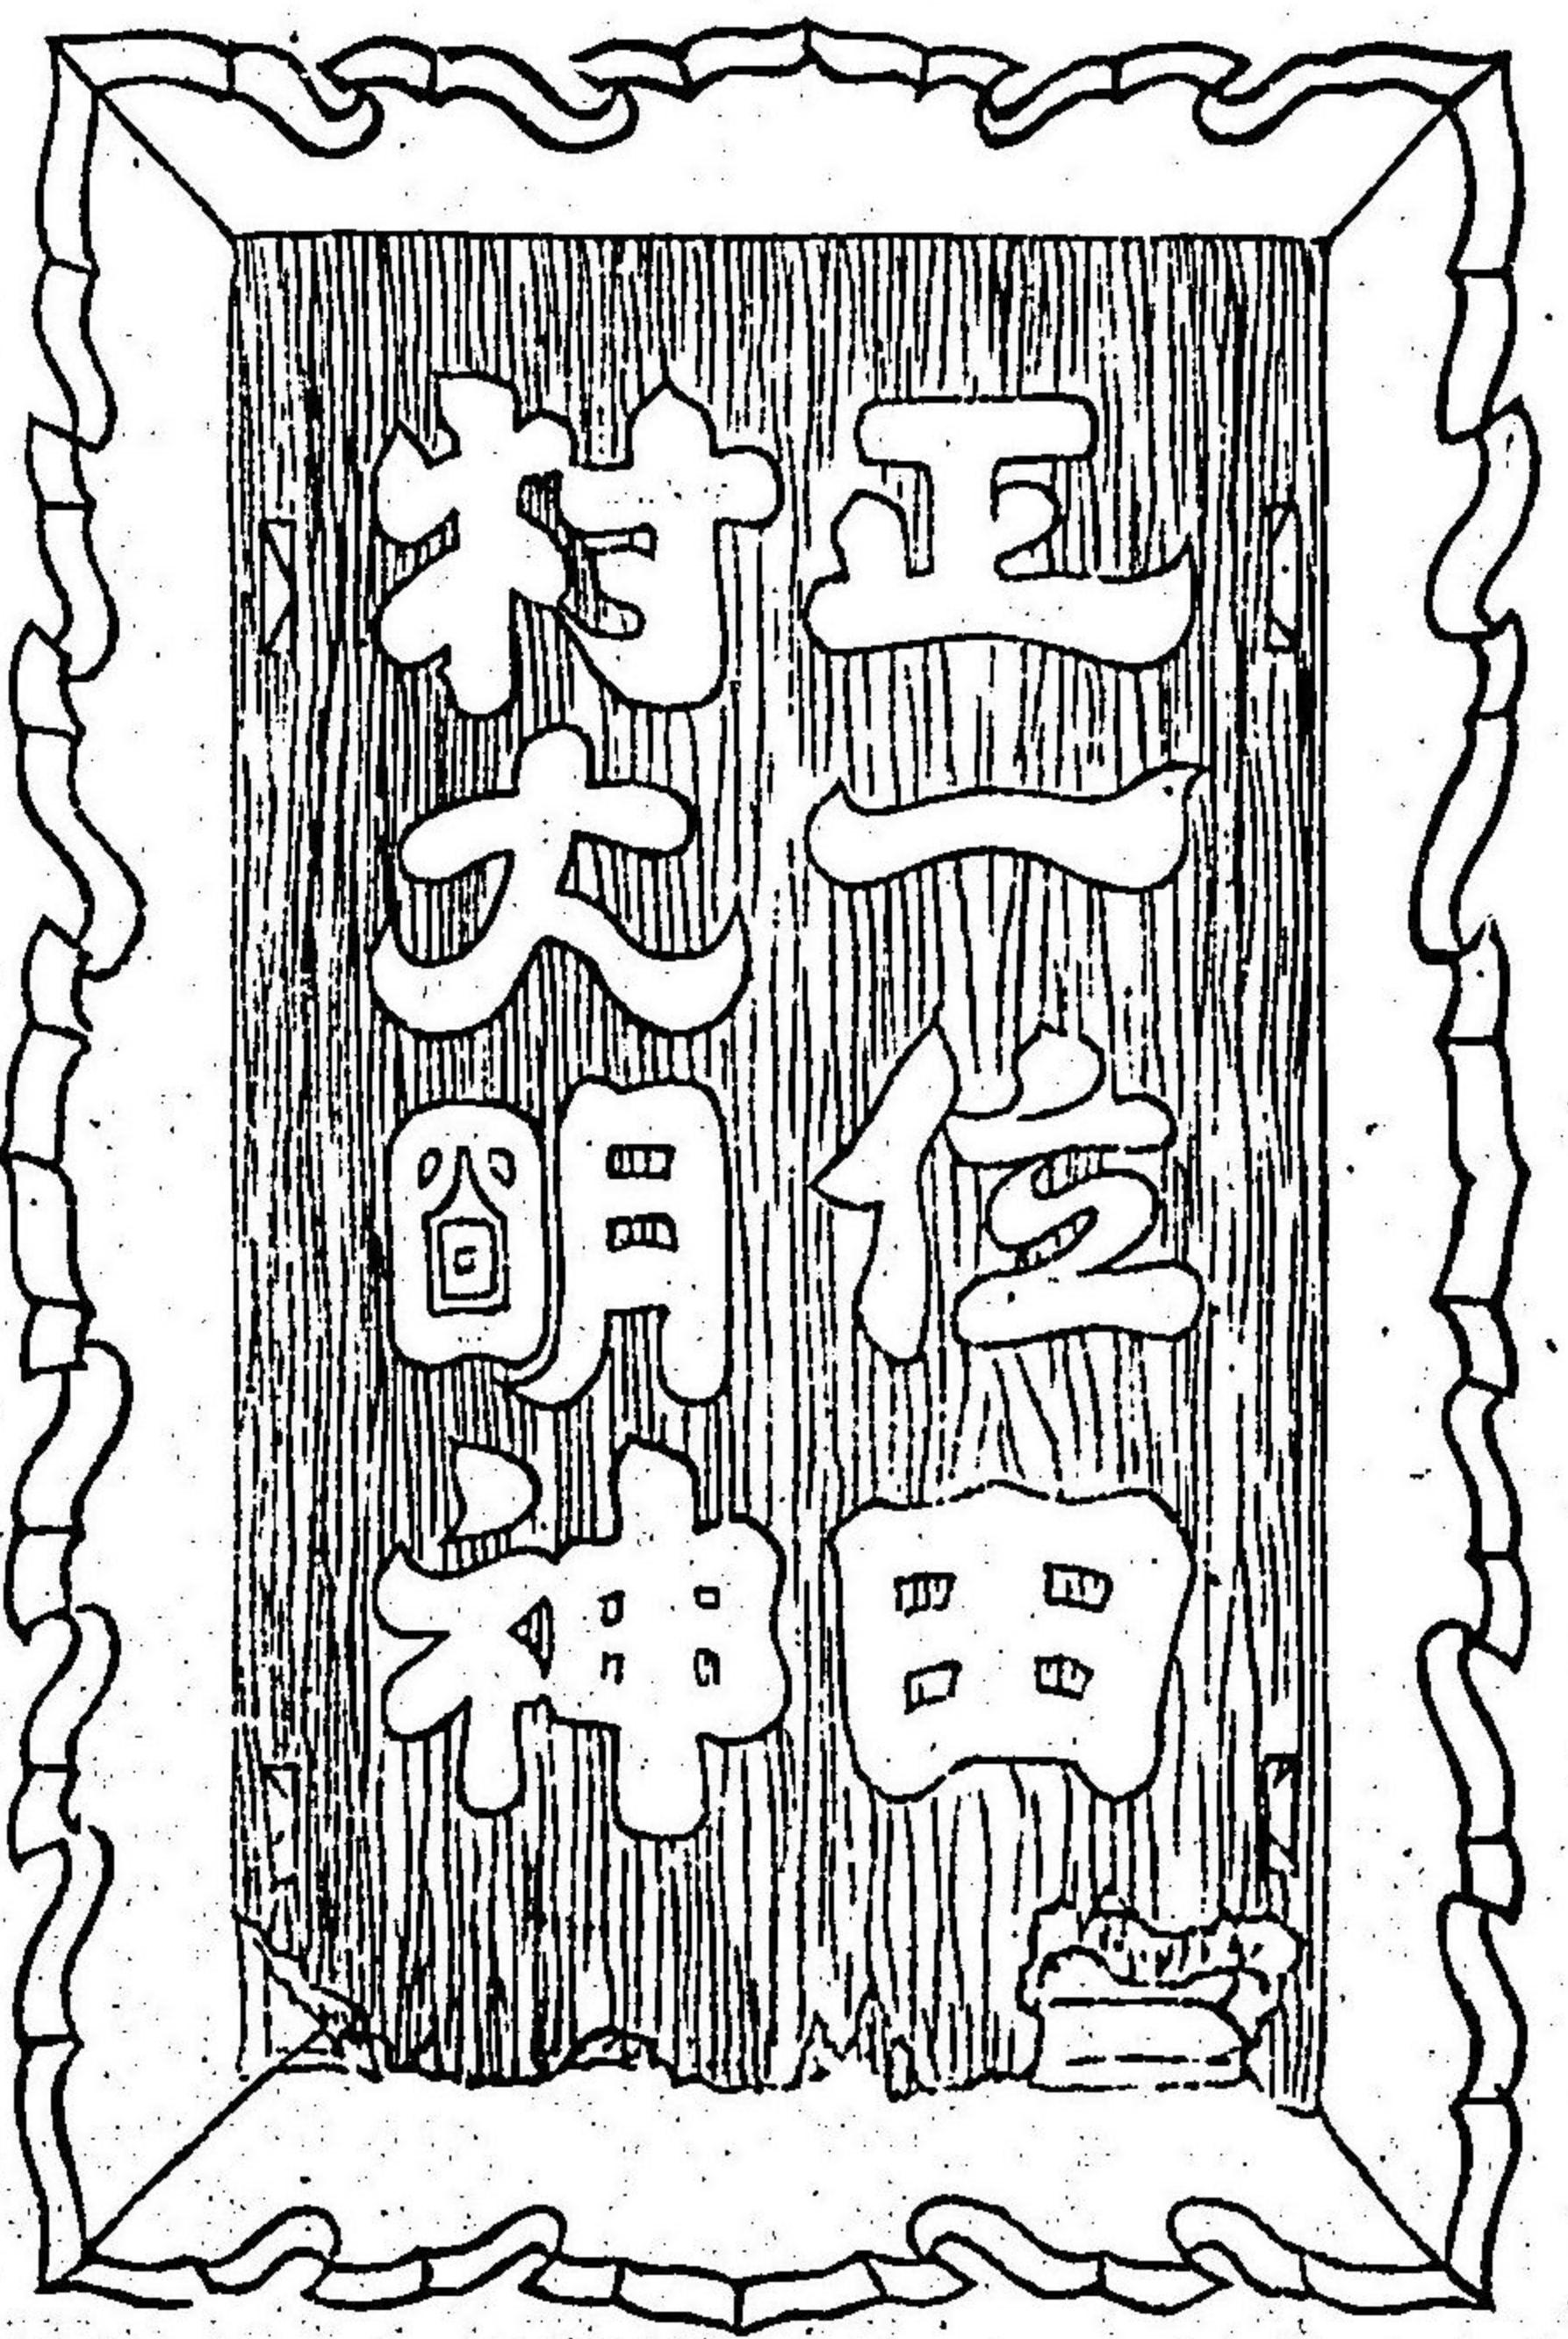 正一位田
村大明神